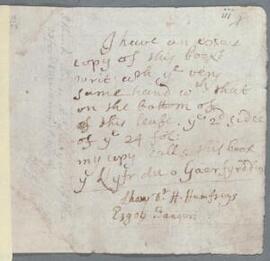 iii
I have an exact
copy of this book
writ with yᵉ very
same hand wᵗʰ that
on the bottom of
of this leafe. yᵉ 2ᵈ side
of yᵉ 24 fol:
my copy calls this book
y Llyfr du o Gaerfyrddin
Humfreys
Esgob Bangor